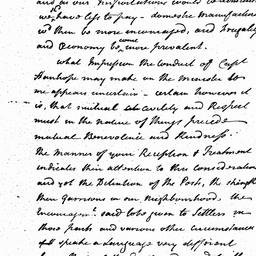 and as our Importations would be
we should have less to pay – domestic Manufactures
wd. then be more encouraged, and Frugality
and Œconomy become more prevalent.
What Impression the Conduct of Capt
Stanhope may make on the Minister to
me appears uncertain – certain however it
is, that mutual Civility and Respect
must in the nature of Things precede
mutual Benevolence and Kindness.
The Manner of your Reception & Treatment
indicates their attention to this Consideration
and yet the Detention of the Posts, the strength
their garrisons in our Neighbourhood, the
Encouragmt. said to be given to Settlers in
those parts and various other Circumstances
speak a Language very different